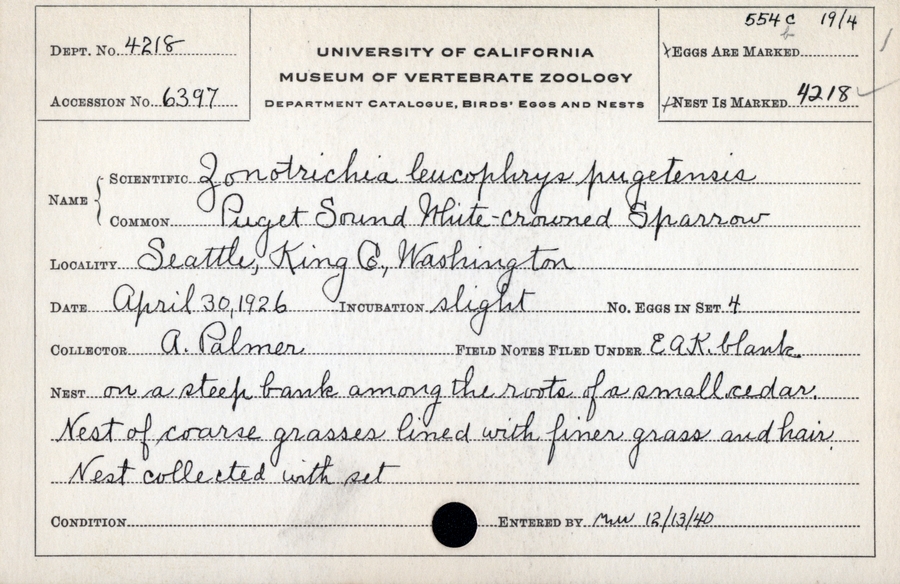 554 c 19/4
b
DEPT. NO. 4218
UNIVERSITY OF CALIFORNIA
xEGGS ARE MARKED
MUSEUM OF VERTEBRATE ZOOLOGY
ACCESSION NO. 6397
DEPARTMENT CATALOGUE, BIRDS' EGGS AND NESTS
NEST IS MARKED 4218
NAME SCIENTIFIC Zonotrichia leucophrys pugetensis
COMMON Puget Sound White-crowned Sparrow
LOCALITY Seattle, King Co., Washington
DATE April 30, 1926 INCUBATION slight NO. EGGS IN SET 4
COLLECTOR A. Palmer FIELD NOTES FILED UNDER EAK. blank
NEST on a steep bank among the roots of a small cedar.
Nest of coarse grasses lined with finer grass and hair.
Nest collected with set
CONDITION ENTERED BY 12/13/40